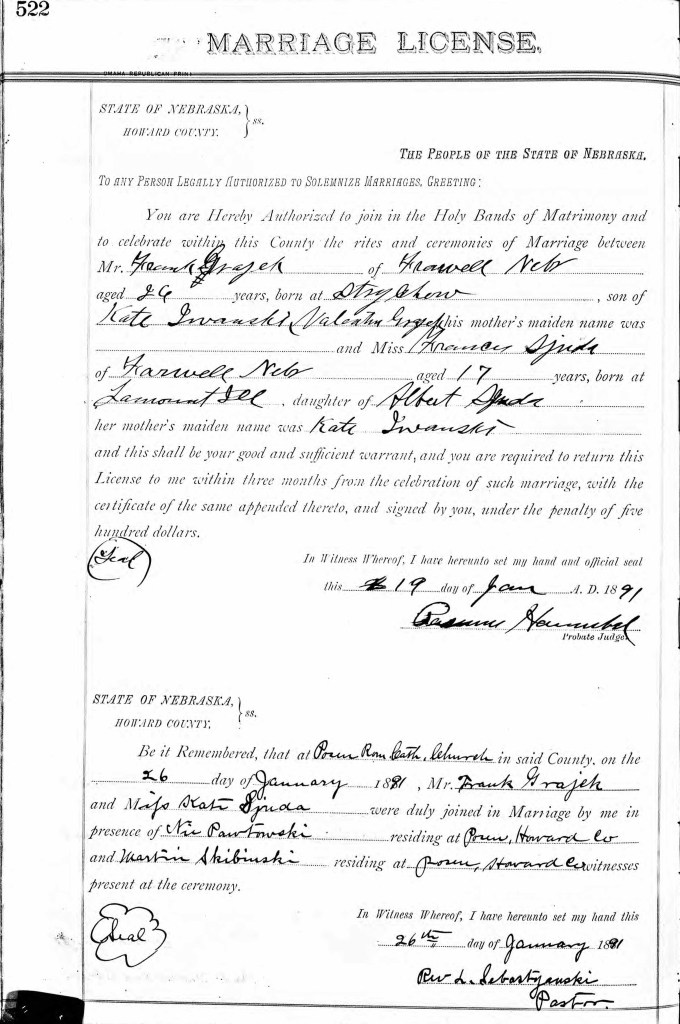 522
MARRIAGE LICENSE.
OMAHA REPUBLICAN PRINT
STATE OF NEBRASKA,
HOWARD COUNTY. } ss.
THE PEOPLE OF THE STATE OF NEBRASKA.
TO ANY PERSON LEGALLY AUTHORIZED TO SOLEMNIZE MARRIAGES, GREETING:
You are Hereby Authorized to join in the Holy Bands of Matrimony and
to celebrate within this County the rites and ceremonies of Marriage between
Mr. Frank Grajek of Frawell Nebr
aged 26 years, born at Strychow, son of
Kate Iwanski Valentin his mother's maiden name was
and Miss Frances Sjuda
of Farwell Nebr aged 17 years, born at
Lamount Ill, daughter of Albert Sjuda
her mother's maiden name was Kate Iwanski
and this shall be your good and sufficient warrant, and you are required to return this
License to me within three months from the celebration of such marriage, with the
certificate of the same appended thereto, and signed by you, under the penalty of five
hundred dollars.
Seal
In Witness Whereof, I have hereunto set my hand and official seal
this 19 day of Jan A. D. 1891
Hannibal
Probate Judge.
STATE OF NEBRASKA,
HOWARD COUNTY. } ss.
Be it Remembered, that at Posen Rom Cath. Church in said County, on the
26 day of January 1891, Mr. Frank Grajek
and Miss Kate Sjuda were duly joined in Marriage by me in
presence of Nic Pawtowski residing at Posen, Howard Co
and Martin Skibinski residing at Posen, Howard Co witnesses
present at the ceremony.
Seal
In Witness Whereof, I have hereunto set my hand this
26th day of January 1891
Rev L. Sebastyanski
Pastor.